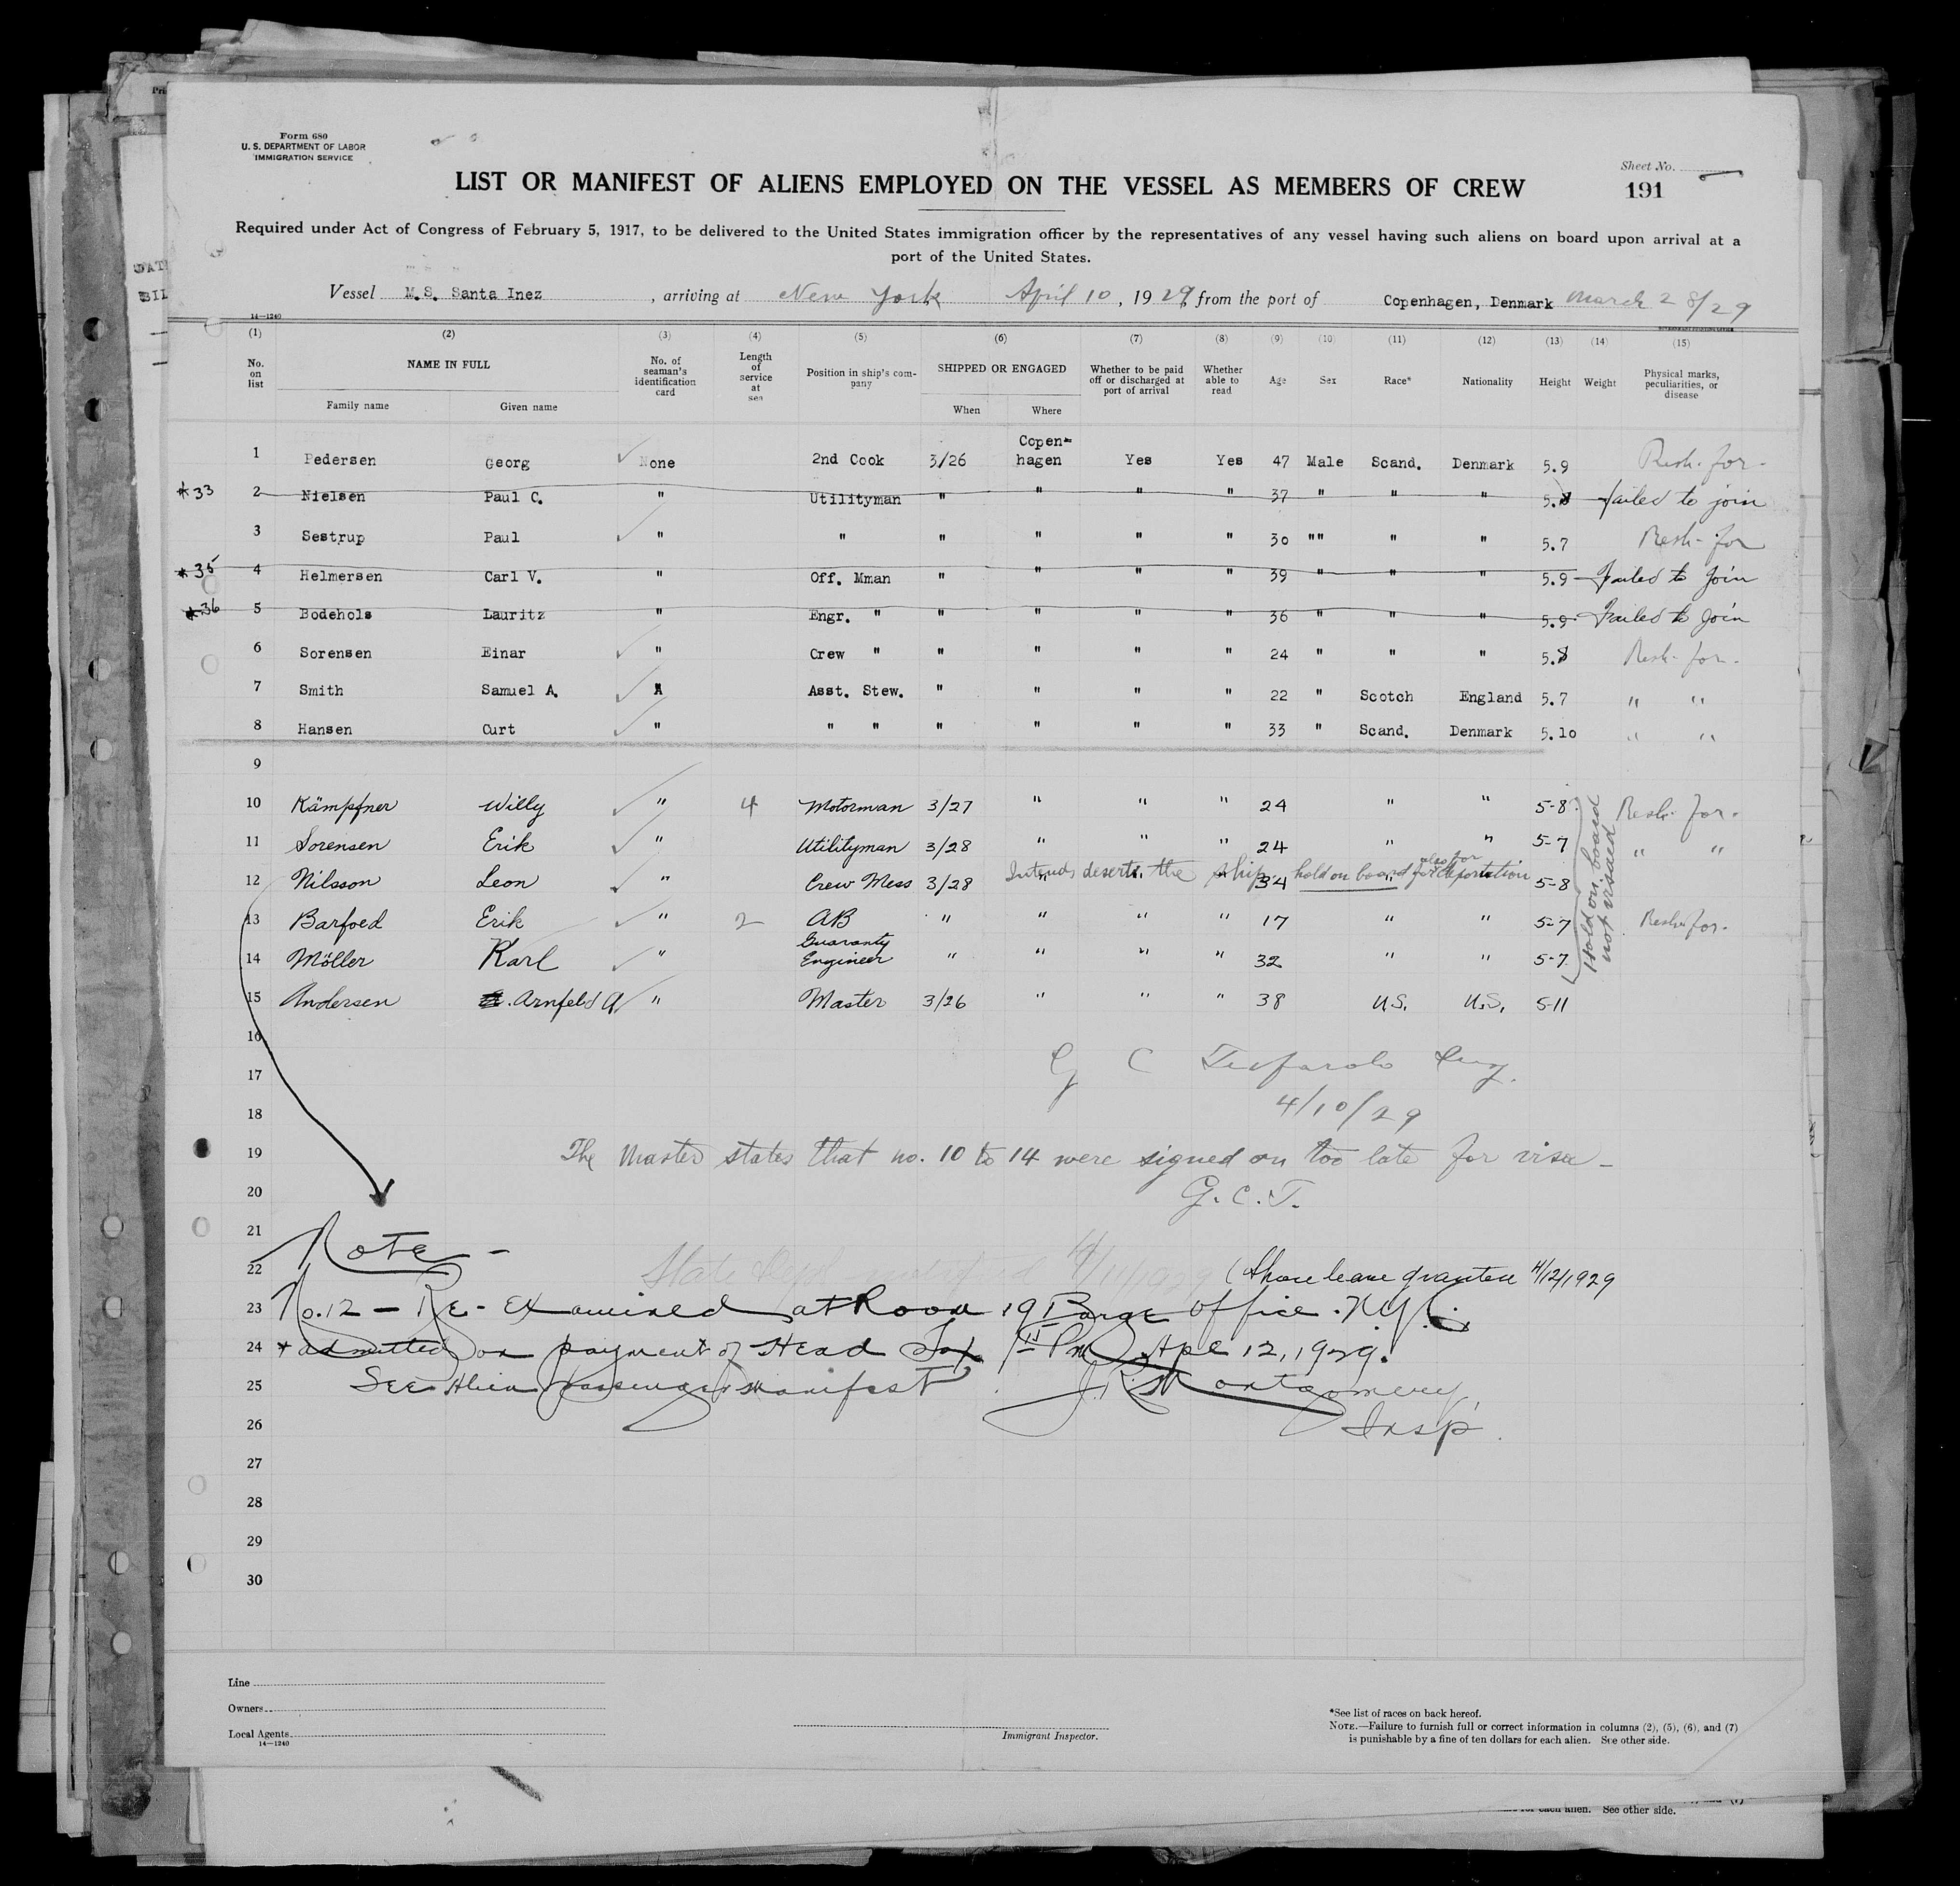 Form 680
U. S. DEPARTMENT OF LABOR
IMMIGRATION SERVICE
Sheet No.
191
LIST OR MANIFEST OF ALIENS EMPLOYED ON THE VESSEL AS MEMBERS OF CREW
Required under Act of Congress of February 5, 1917, to be delivered to the United States immigration officer by the representatives of any vessel having such aliens on board upon arrival at a
port of the United States.
Vessel M.S. Santa Inez, arriving at New York April 10, 1929, from the port of Copenhagen, Denmark March 28/29
14—1240
(1) (2) (3) (4) (5) (6) (7) (8) (9) (10) (11) (12) (13) (14) (15)
No. on list NAME IN FULL Family name Given name No. of seaman's identification card Length of service at sea Position in ship's company SHIPPED OR ENGAGED When Where Whether to be paid off or discharged at port of arrival Whether able to read Age Sex Race* Nationality Height Weight Physical marks, peculiarities, or disease
1 Pedersen Georg None 2nd Cook 3/26 Copen-hagen Yes Yes 47 Male Scand. Denmark 5.9 Resh. for.
*33 2 Nielsen Paul C. " Utilityman " " " " 37 " " " 5. failed to join
3 Sestrup Paul " " " " " " 30 "" " " 5.7 Resh. for
*35 4 Helmersen Carl V. " Off. Mman " " " " 39 " " " 5.9 Failed to Join
*36 5 Bodehols Lauritz " Engr. " " " " " 36 " " " 5.9 Failed to Join
6 Sorensen Einar " Crew " " " " " 24 " " " 5.8 Resh. for.
7 Smith Samuel A. " Asst. Stew. " " " " 22 " Scotch England 5.7 " "
8 Hansen Curt " " " " " " " 33 " Scand. Denmark 5.10 " "
9
10 Kämpfner Willy " 4 Motorman 3/27 " " " 24 " " 5-8 Resh. for.
11 Sorensen Erik " Utilityman 3/28 " " " 24 " " 5-7 " "
Intends deserts the ship hold on board also for deportation
12 Nilsson Leon " Crew Mess 3/28 " " " 34 " " 5-8
13 Barfoed Erik " 2 AB " " " " 17 " " 5-7 Resh. for.
14 Möller Karl " Guaranty Engineer " " " " 32 " " 5-7
Hold on board
not visaed
15 Andersen . Arnfeld A. " Master 3/26 " " " 38 U.S. U.S. 5-11
16
G C
17
4/10/29
18
19 The Master states that no. 10 to 14 were signed on too late for visa -
20 G.C.T.
21 Note -
22 (Shore leave granted 4/12/1929
23 No. 12 - Re-examined at Room 19 Barge Office. N.Y.C.
24 * admitted on payment of Head Tax Apl 12, 1929.
25 See Alien Passenger Manifest J.R. Montgomery
26 Insp.
27
28
29
30
Line
Owners
Local Agents
14—1240
Immigrant Inspector.
*See list of races on back hereof.
NOTE.—Failure to furnish full or correct information in columns (2), (5), (6), and (7)
is punishable by a fine of ten dollars for each alien. See other side.
See other side.